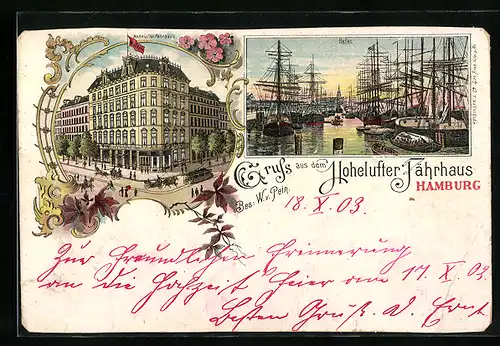 Hohelufter Fährhaus
Hafen
Gruss aus dem Hohelufter-Fährhaus
Bes: W. v. Pein.
HAMBURG
18. X. 03.
Zur freundlichen Erinnerung
an die Hochzeit feier am 17. X. 03.
Besten Gruß. W. Ernst